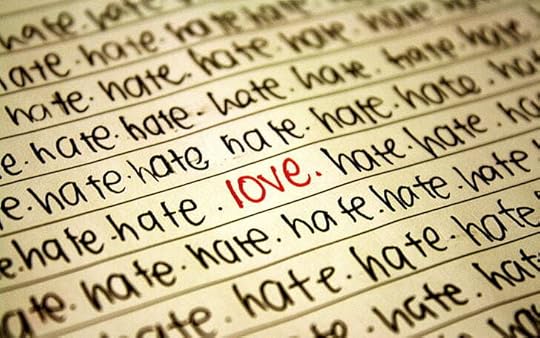 hate hate
ate. hate. hate. hate
hate. hate. hate. hate. hate.
e. hate. hate. hate. hate. hate. hate
e. hate. hate. hate. hate. hate. ha
e. hate hate . love. hate. hate. ha
ate. hate. hate. hate. hate. hate
hate. hate. hate. hate
hate. hate. hat